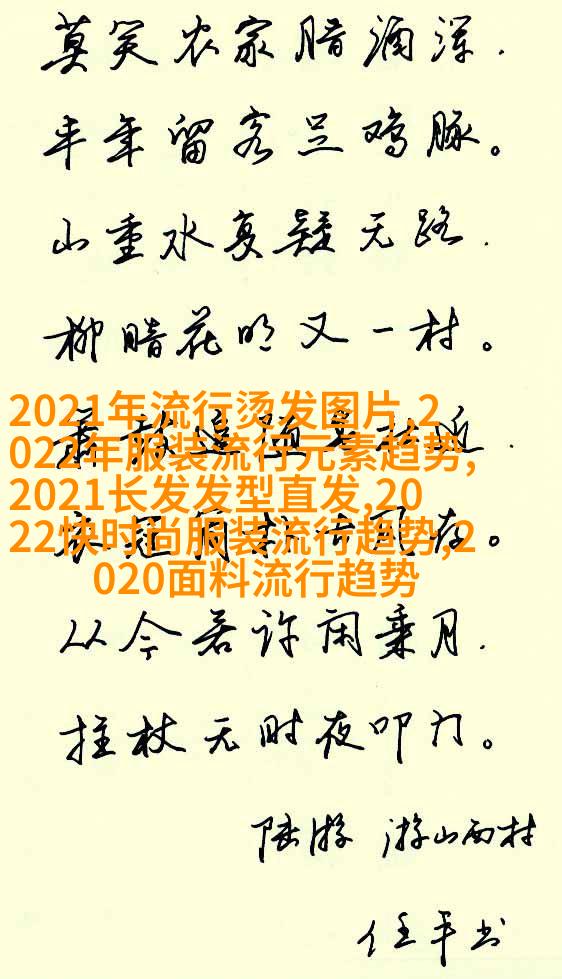 莫笑农家腊酒浑.
丰年留客足鸡豚。
山重水复疑无路.
柳暗花明又一村。
2021年流行烫发图片,2
022年服装流行元素趋势,
2021长发发型直发,20
22快时尚服装流行趋势,2
020面料流行趋势
鼓追随 近.
风存。
从今若许闲乘月.
拄杖无时夜叩门。
陆游 游山西村
任平书